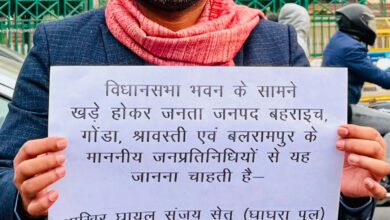 विधानसभा भवन के सामने
खड़े होकर जनता जनपद बहराइच,
गोंडा, श्रावस्ती एवं बलरामपुर के
माननीय जनप्रतिनिधियों से यह
जानना चाहती है–
आखिर घायल संजय सेतु (घाघरा पुल)